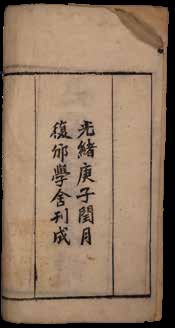 光緒庚子閏月
復邠學舍刊成